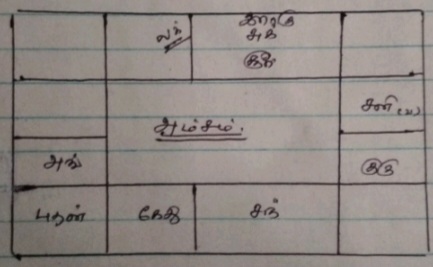 லக்
ராகு
சுக்
சூரி
சனி (வ)
அம்சம்.
அங்
குரு
புதன்
கேது
சந்